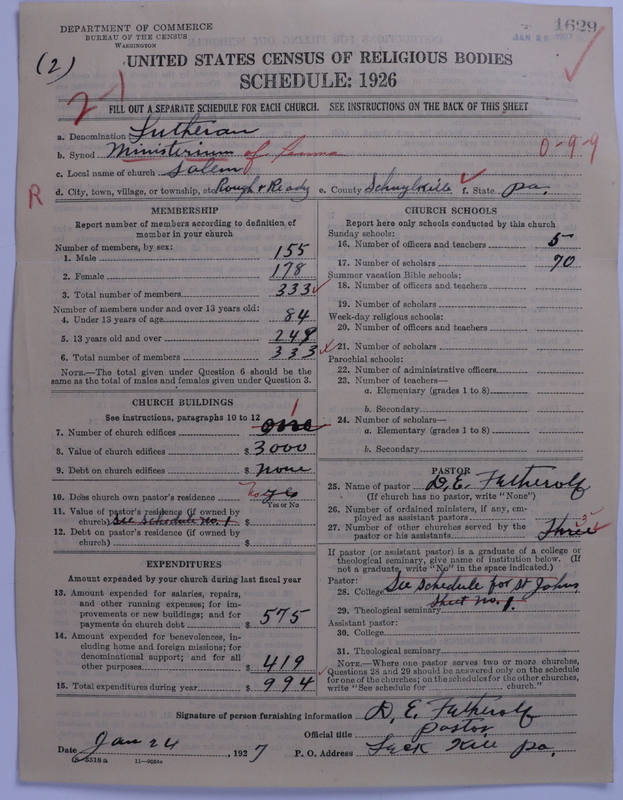 DEPARTMENT OF COMMERCE
BUREAU OF THE CENSUS
WASHINGTON
1629
JAN 28 1927
(2)
UNITED STATES CENSUS OF RELIGIOUS BODIES
SCHEDULE: 1926
FILL OUT A SEPARATE SCHEDULE FOR EACH CHURCH. SEE INSTRUCTIONS ON THE BACK OF THIS SHEET
a. Denomination Lutheran
b. Synod Ministerium of Penna 0-9-9
c. Local name of church Salem
R d. City, town, village, or township, etc Rough & Ready e. County Schuylkill f. State Pa.
MEMBERSHIP
Report number of members according to definition of member in your church
Number of members, by sex:
1. Male 155
2. Female 178
3. Total number of members 333
Number of members under and over 13 years old:
4. Under 13 years of age 84
5. 13 years old and over 249
6. Total number of members 333
NOTE.—The total given under Question 6 should be the
same as the total of males and females given under Question 3.
CHURCH BUILDINGS
See instructions, paragraphs 10 to 12
7. Number of church edifices one 1
8. Value of church edifices $ 3000
9. Debt on church edifices $ none
10. Does church own pastor's residence no yes
Yes or No
11. Value of pastor's residence (if owned by
church) See Schedule No. 1 $
12. Debt on pastor's residence (if owned by
church) $
EXPENDITURES
Amount expended by your church during last fiscal year
13. Amount expended for salaries, repairs,
and other running expenses; for im-
provements or new buildings; and for
payments on church debt $ 575
14. Amount expended for benevolences, in-
cluding home and foreign missions; for
denominational support; and for all
other purposes $ 419
15. Total expenditures during year $ 994
CHURCH SCHOOLS
Report here only schools conducted by this church
Sunday schools:
16. Number of officers and teachers 5
17. Number of scholars 70
Summer vacation Bible schools:
18. Number of officers and teachers
19. Number of scholars
Week-day religious schools:
20. Number of officers and teachers
21. Number of scholars
Parochial schools:
22. Number of administrative officers
23. Number of teachers—
a. Elementary (grades 1 to 8)
b. Secondary
24. Number of scholars—
a. Elementary (grades 1 to 8)
b. Secondary
PASTOR
25. Name of pastor D. E. Fetherolf
(If church has no pastor, write "None")
26. Number of ordained ministers, if any, em-
ployed as assistant pastors
27. Number of other churches served by the
pastor or his assistants Three 3
If pastor (or assistant pastor) is a graduate of a college or
theological seminary, give name of institution below. (If
not a graduate, write "No" in the space indicated.)
Pastor:
28. College See Schedule for St Johns
Sheet No. 1.
29. Theological seminary
Assistant pastor:
30. College
31. Theological seminary
NOTE.—Where one pastor serves two or more churches,
Questions 28 and 29 should be answered only on the schedule
for one of the churches; on the schedules for the other churches,
write "See schedule for church."
Signature of person furnishing information D. E. Fetherolf
Official title Pastor
Date Jan 24, 1927 P. O. Address Luck Kill Pa.
8-5518 a 11—9054a